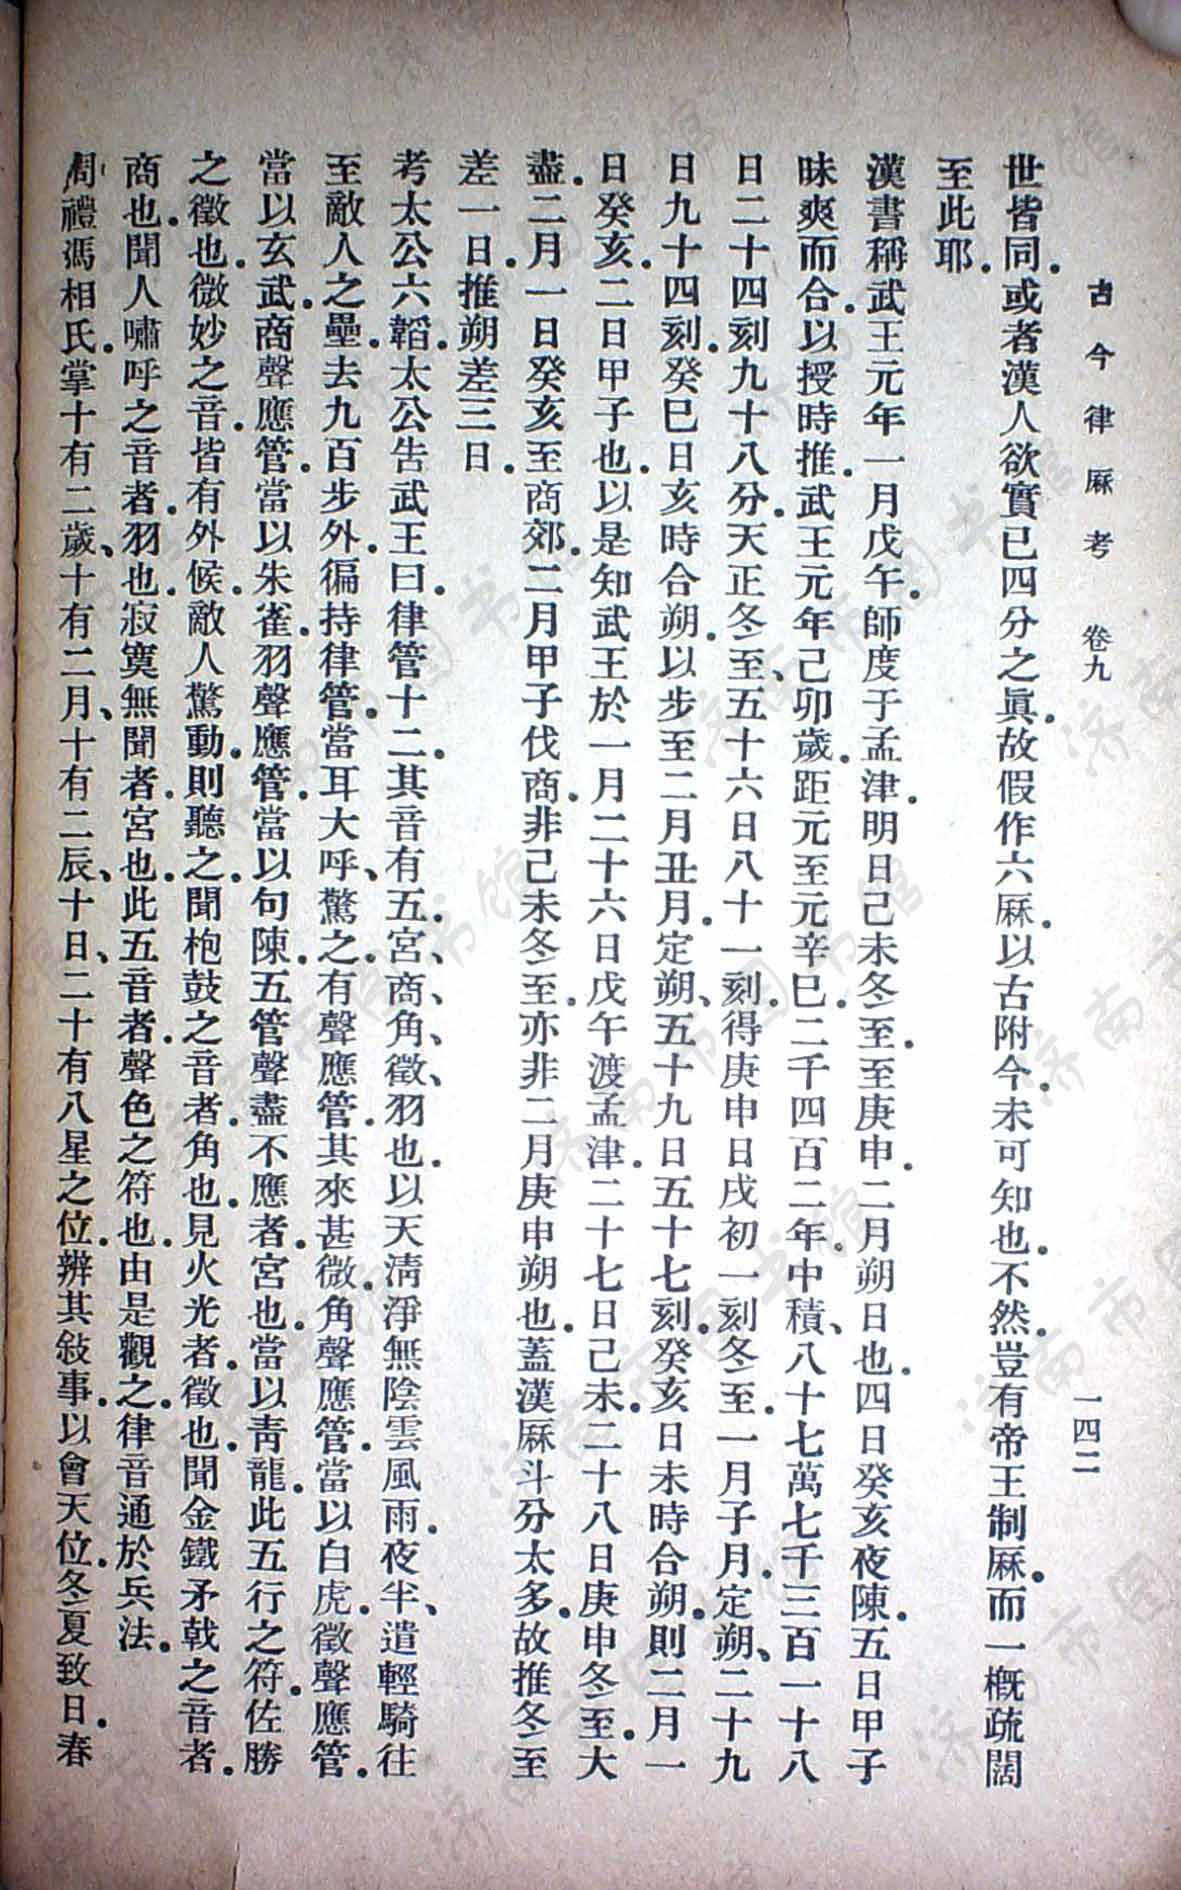 古今律厤考　卷九　一四二
世皆同。或者漢人欲實已四分之眞。故假作六厤。以古附今。未可知也。不然。豈有帝王制厤。而一槪疏闊
至此耶。
漢書稱武王元年一月戊午。師度于孟津。明日己未冬至。至庚申。二月朔日也。四日癸亥夜陳。五日甲子
昧爽而合。以授時推。武王元年己卯歲。距元至元辛巳。二千四百二年。中積、八十七萬七千三百一十八
日二十四刻九十八分。天正冬至、五十六日八十一刻。得庚申日戌初一刻冬至。一月子月。定朔、二十九
日九十四刻。癸巳日亥時合朔。以步至二月丑月。定朔、五十九日五十七刻。癸亥日未時合朔。則二月一
日癸亥。二日甲子也。以是知武王於一月二十六日戊午渡孟津。二十七日己未。二十八日庚申冬至。大
盡。二月一日癸亥至商郊。二月甲子伐商。非己未冬至。亦非二月庚申朔也。蓋漢厤斗分太多。故推冬至
差一日。推朔差三日。
考太公六韜。太公告武王曰。律管十二。其音有五。宮、商、角、徵、羽也。以天淸淨無陰雲風雨。夜半、遣輕騎往
至敵人之壘。去九百步外。徧持律管。當耳大呼、驚之。有聲應管。其來甚微。角聲應管。當以白虎。徵聲應管。
當以玄武。商聲應管。當以朱雀。羽聲應管。當以句陳。五管聲盡不應者。宮也。當以靑龍。此五行之符。佐勝
之徵也。微妙之音。皆有外候。敵人驚動。則聽之。聞枹鼓之音者。角也。見火光者。徵也。聞金鐵矛戟之音者。
商也。聞人嘯呼之音者。羽也。寂寞無聞者。宮也。此五音者。聲色之符也。由是觀之。律音通於兵法。
周禮馮相氏。掌十有二歲、十有二月、十有二辰、十日、二十有八星之位。辨其敍事。以會天位。冬夏致日。春